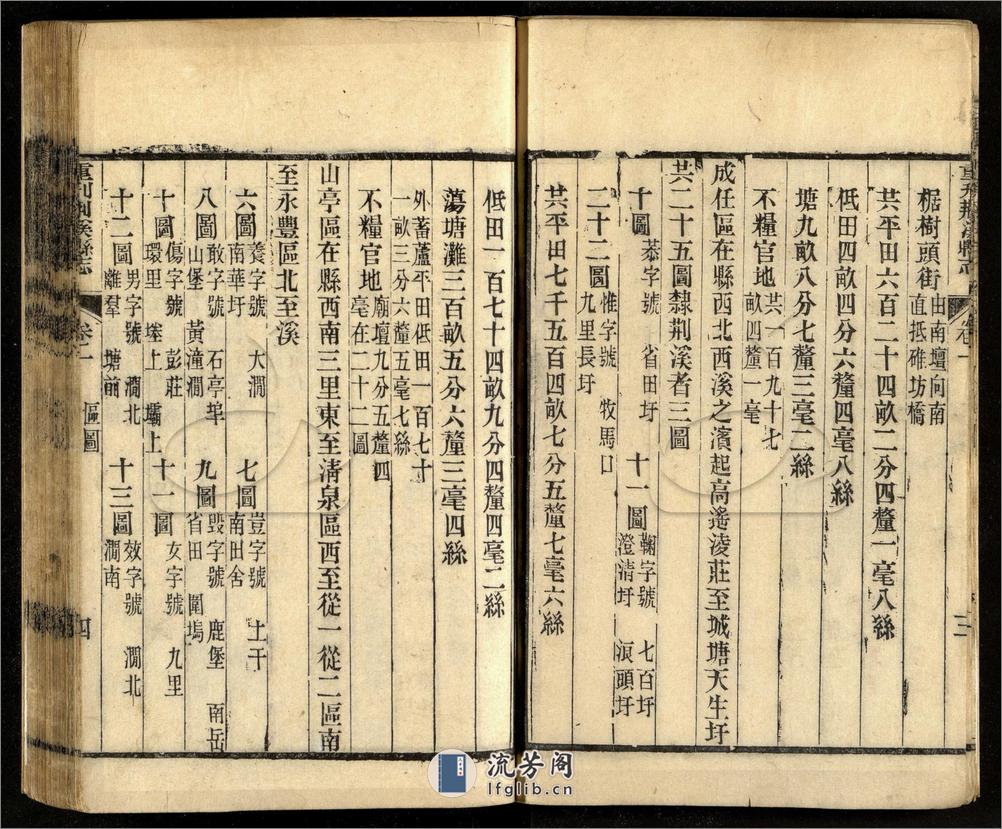 椐樹頭街 由南壇向南
直抵碓坊橋
共平田六百二十四畝二分四釐一毫八絲
低田四畝四分六釐四毫八絲
塘九畝八分七釐三毫二絲
不糧官地 共一百九十七
畝四釐一毫
成任區在縣西北西溪之濱起高遙淩莊至城塘天生圩
共二十五圖隸荆溪者三圖
十圖 恭字號 省田圩 十一圖 鞠字號 七百圩
澄清圩 洍頭圩
二十二圖 惟字號 牧馬口
九里長圩
共平田七千五百四畝七分五釐七毫六絲
重刋荆溪縣志 卷一 三
低田一百七十四畝九分四釐四毫二絲
蕩塘灘三百畝五分六釐三毫四絲
外蓄蘆平田低田一百七十
一畝三分六釐五毫七絲
不糧官地 廟壇九分五釐四
毫在二十二圖
山亭區在縣西南三里東至清泉區西至從一從二區南
至永豐區北至溪
六圖 養字號 大澗 七圖 豈字號 土干
南華圩 南田舍
八圖 敢字號 石亭埠 九圖 毀字號 鹿堡 南岳
山堡 黃潼澗 省田 圍塢
十圖 傷字號 彭莊 十一圖 女字號 九里
環里 塟上 壩上
十二圖 男字號 澗北 十三圖 效字號 澗北
離羣 塘前 澗南
重刋荆溪縣志 卷一 區圖 四
流芳阁
lfglib.cn